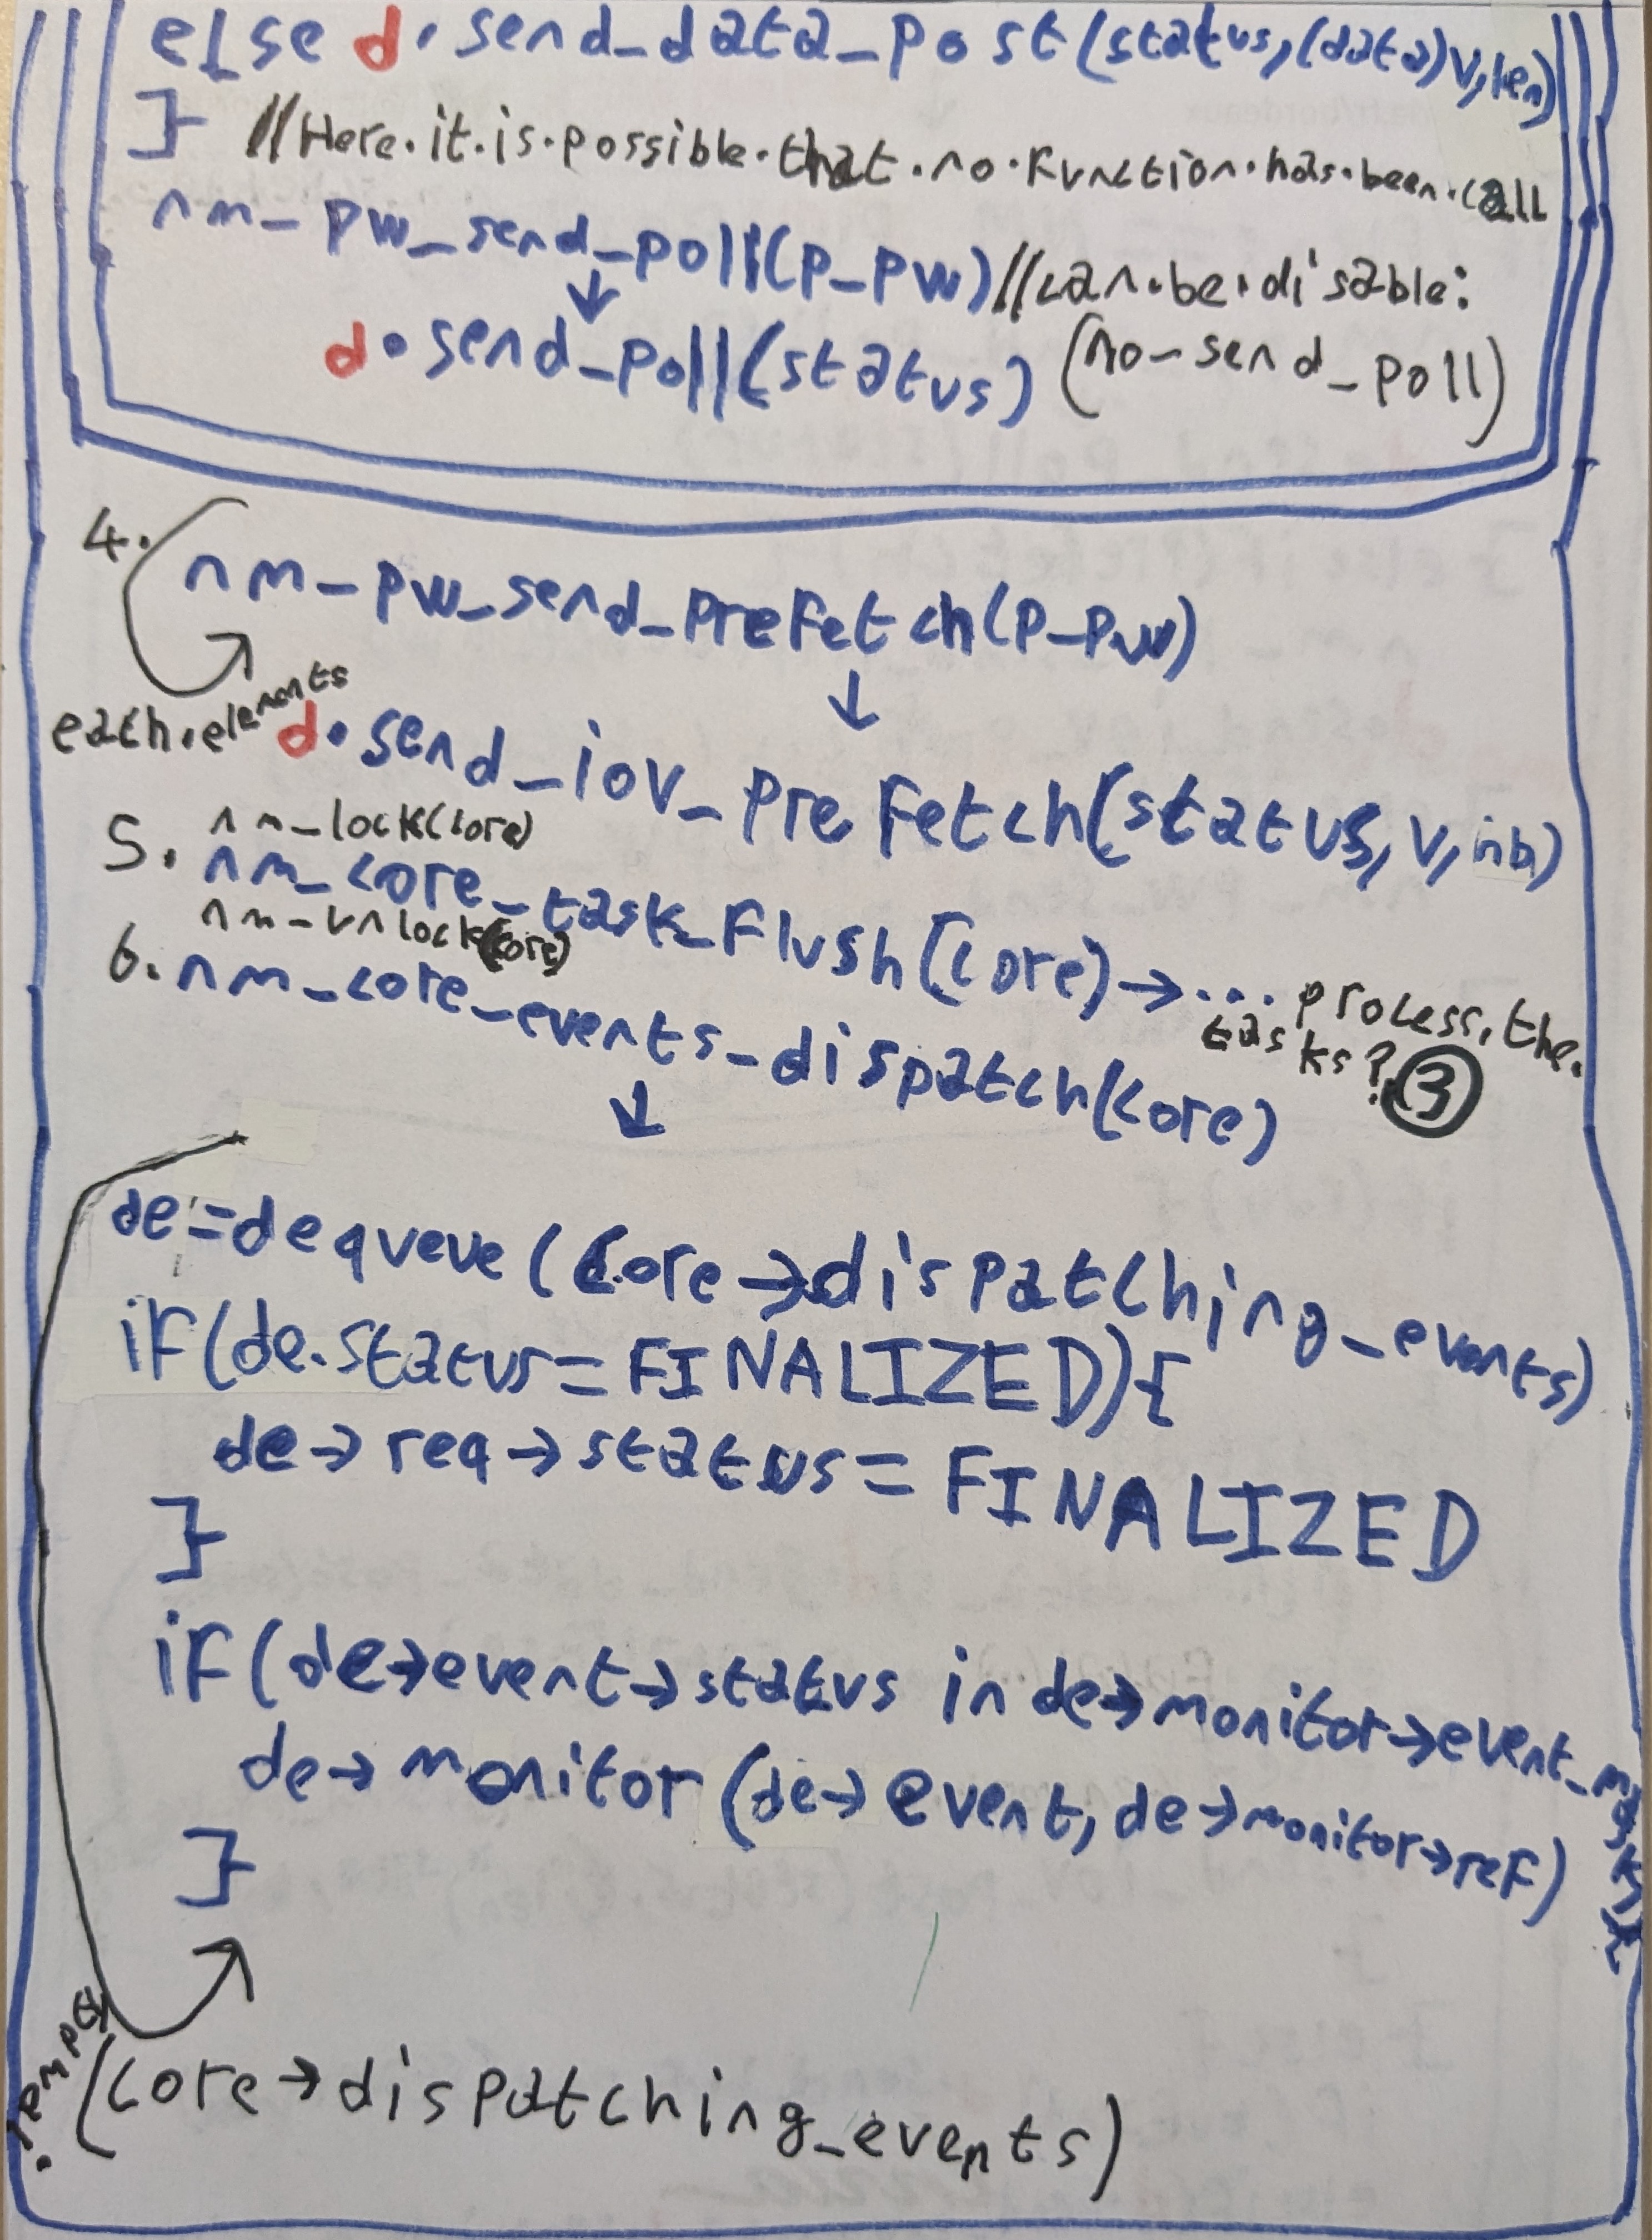 else d.send_data_post(status,(data)v,len)
} //Here.it.is.possible.that.no.function.has.been.call
nm_pw_send_poll(p_pw) //can.be.disable:
↓
d.send_poll(status) (no-send_poll)
4.
nm_pw_send_prefetch(p_pw)
↓
each.elements
d.send_iov_prefetch(status,v,nb)
nm_lock(core)
5. nm_core_task_flush(core)→... process.the.
tasks? ③
nm_unlock(core)
6. nm_core_events_dispatch(core)
↓
de=dequeue(core→dispatching_events)
if(de.status=FINALIZED){
de→req→status=FINALIZED
}
if(de→event→status in de→monitor→event_mask){
de→monitor(de→event,de→monitor→ref)
}
(core→dispatching_events)